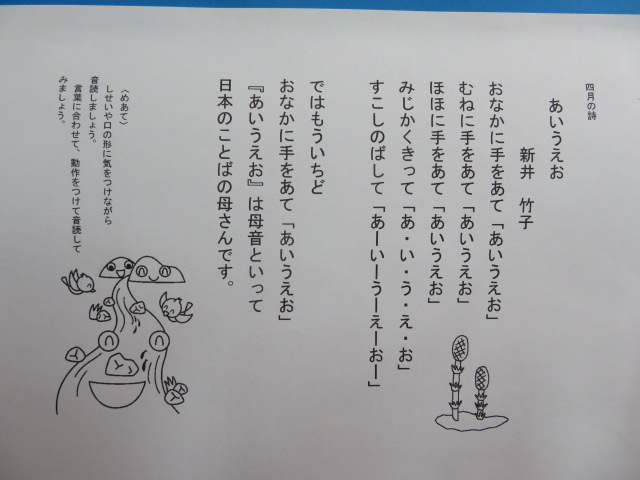 四月の詩
あいうえお
新井 竹子
おなかに手をあて「あいうえお」
むねに手をあて「あいうえお」
ほほに手をあて「あいうえお」
みじかくきって「あ・い・う・え・お」
すこしのばして「あーいーうーえーおー」
ではもういちど
おなかに手をあて「あいうえお」
『あいうえお』は母音といって
日本のことばの母さんです。
〈めあて〉
しせいや口の形に気をつけながら
音読しましょう。
言葉に合わせて、動作をつけて音読して
みましょう。